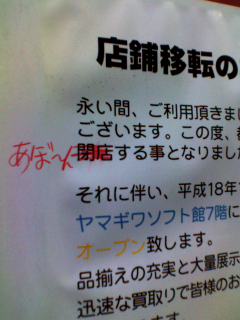 店舗移転の
永い間、ご利用頂きまし
ございます。この度、
あぼ〜ん
閉店する事となりまし
それに伴い、平成18年
ヤマギワソフト館7階に
オープン致します。
品揃えの充実と大量展示
迅速な買取りで皆様のお